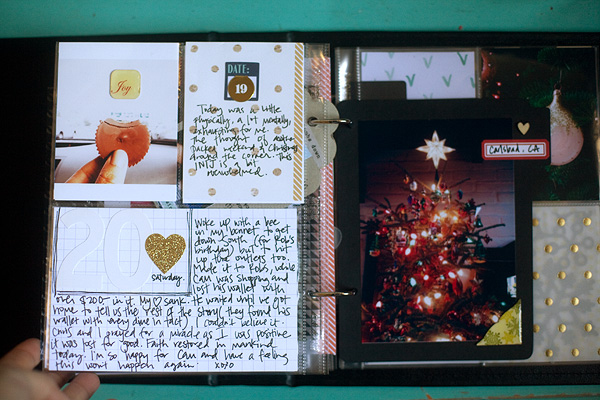 Joy
DATE:
19
Today was a little
physically, a lot mentally,
exhausting for me.
The thought of
packed weekend & Christmas
around the corner. This
INTJ is a bit
overwhelmed.
20
Saturday
Woke up with a bee
in my bonnet to get
down south (for Rob's
birthday) but to hit
up the outlets too.
Made it to Rob's, while
Cam was shopping and
lost his wallet with
over $200 in it. My ♡ sank. He waited until we got
home to tell us the rest of the story: they found his
wallet with every dime in tact. I couldn't believe it.
Chris and I prayed for a miracle as I was positive
it was lost for good. Faith restored in mankind
today. I'm so happy for Cam and have a feeling
this won't happen again. XOXO
Carlsbad, CA